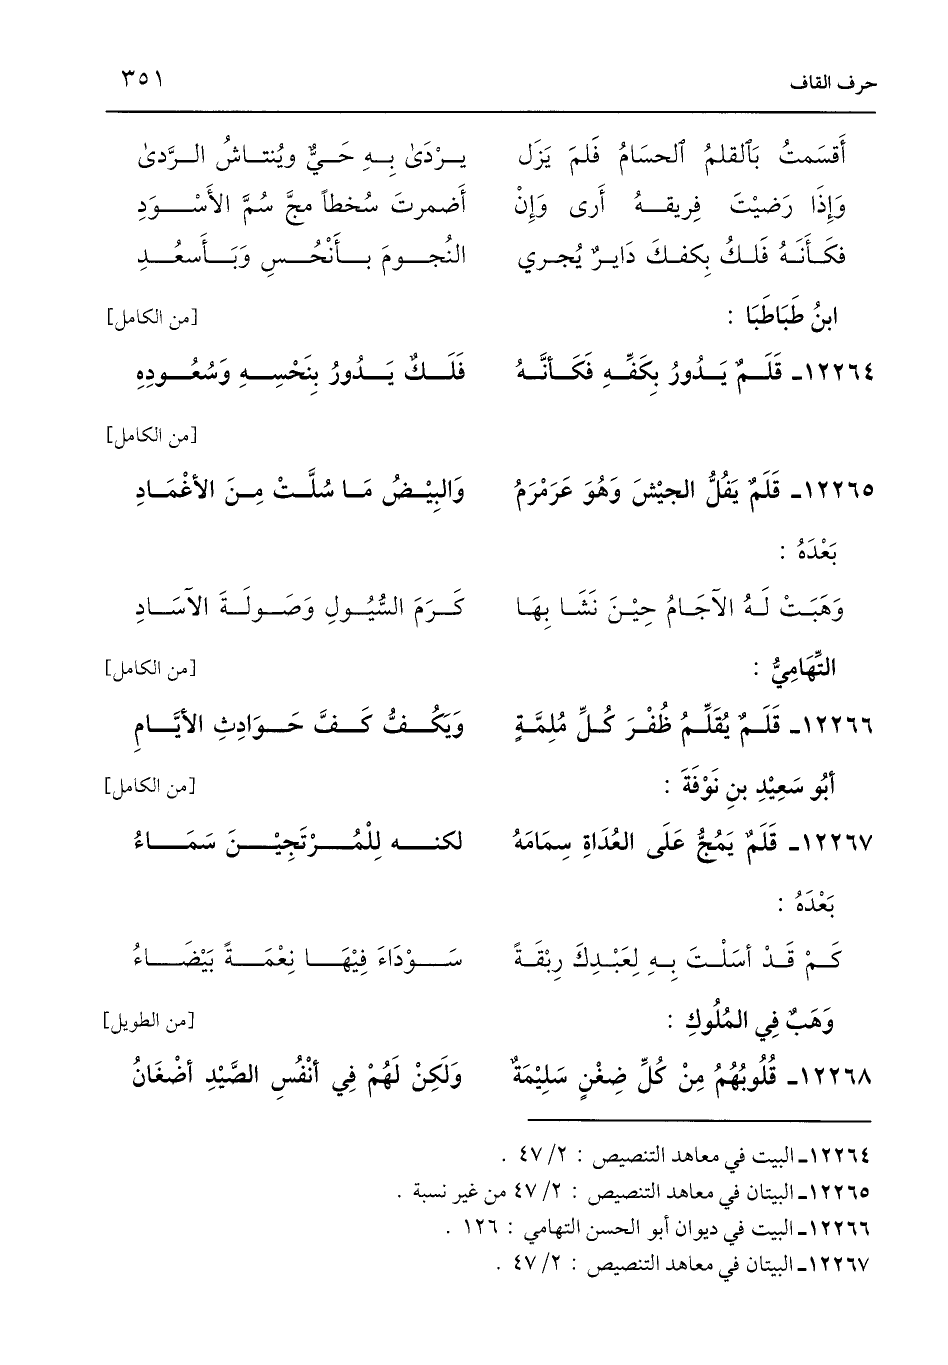 حرف القاف ٣٥١
أَقسَمتُ بَالقلمُ الحسَامُ فَلمَ يَزَل يـرْدَىٰ بِـهِ حَـيٌّ ويُنتـاشُ الـرَّدىٰ
وَإِذَا رَضيْتَ فِريقـهُ أَرى وَإِنْ أَضمرتَ سُخطاً مجَّ سُمَّ الأَسْـوَدِ
فكَـأَنَهُ فَلـكُ بِكفـكَ دَايـرٌ يُجـري النُجـومَ بـأَنْحُـسٍ وَبَـأَسعُـدِ
ابنُ طَبَاطَبَا : [من الكامل]
١٢٢٦٤ـ قَلَـمٌ يَـدُورُ بِكَفِّـهِ فَكَـأنَّـهُ فَلَـكٌ يَـدُورُ بِنَحْسِـهِ وَسُعُـودِهِ
[من الكامل]
١٢٢٦٥ـ قَلَمٌ يَفُلُّ الجيْشَ وَهُوَ عَرَمْرَمُ وَالبِيْـضُ مَـا سُلَّـتْ مِـنَ الأغْمَـادِ
بَعْدَهُ :
وَهَبَـتْ لَـهُ الآجَـامُ حِيْـنَ نَشَـا بِهَـا كَـرَمَ السُّيُـولِ وَصَـولَـةَ الآسَـادِ
التِّهَامِيُّ : [من الكامل]
١٢٢٦٦ـ قَلَـمٌ يُقَلِّـمُ ظُفْـرَ كُـلِّ مُلِمَّـةٍ وَيَكُـفُّ كَـفَّ حَـوَادِثِ الأيَّـامِ
أبُو سَعِيْدِ بنِ نَوْفَةَ : [من الكامل]
١٢٢٦٧ـ قَلَمٌ يَمُجُّ عَلَى العُدَاةِ سِمَامَهُ لكنـه لِلْمُـرْتَجِيْـنَ سَمَـاءُ
بَعْدَهُ :
كَـمْ قَـدْ أسَلْـتَ بِـهِ لِعَبْـدِكَ رِيْقَـةً سَـوْدَاءَ فِيْهَـا نِعْمَـةً بَيْضَـاءُ
وَهَبٌ فِي المُلُوكِ : [من الطويل]
١٢٢٦٨ـ قُلُوبُهُمُ مِنْ كُلِّ ضِغْنٍ سَلِيْمَةٌ وَلَكِنْ لَهُمْ فِي أنْفُسِ الصَّيْدِ أضْغَانُ
١٢٢٦٤ـ البيت في معاهد التنصيص : ٢/ ٤٧ .
١٢٢٦٥ـ البيتان في معاهد التنصيص : ٢/ ٤٧ من غير نسبة .
١٢٢٦٦ـ البيت في ديوان أبو الحسن التهامي : ١٢٦ .
١٢٢٦٧ـ البيتان في معاهد التنصيص : ٢/ ٤٧ .